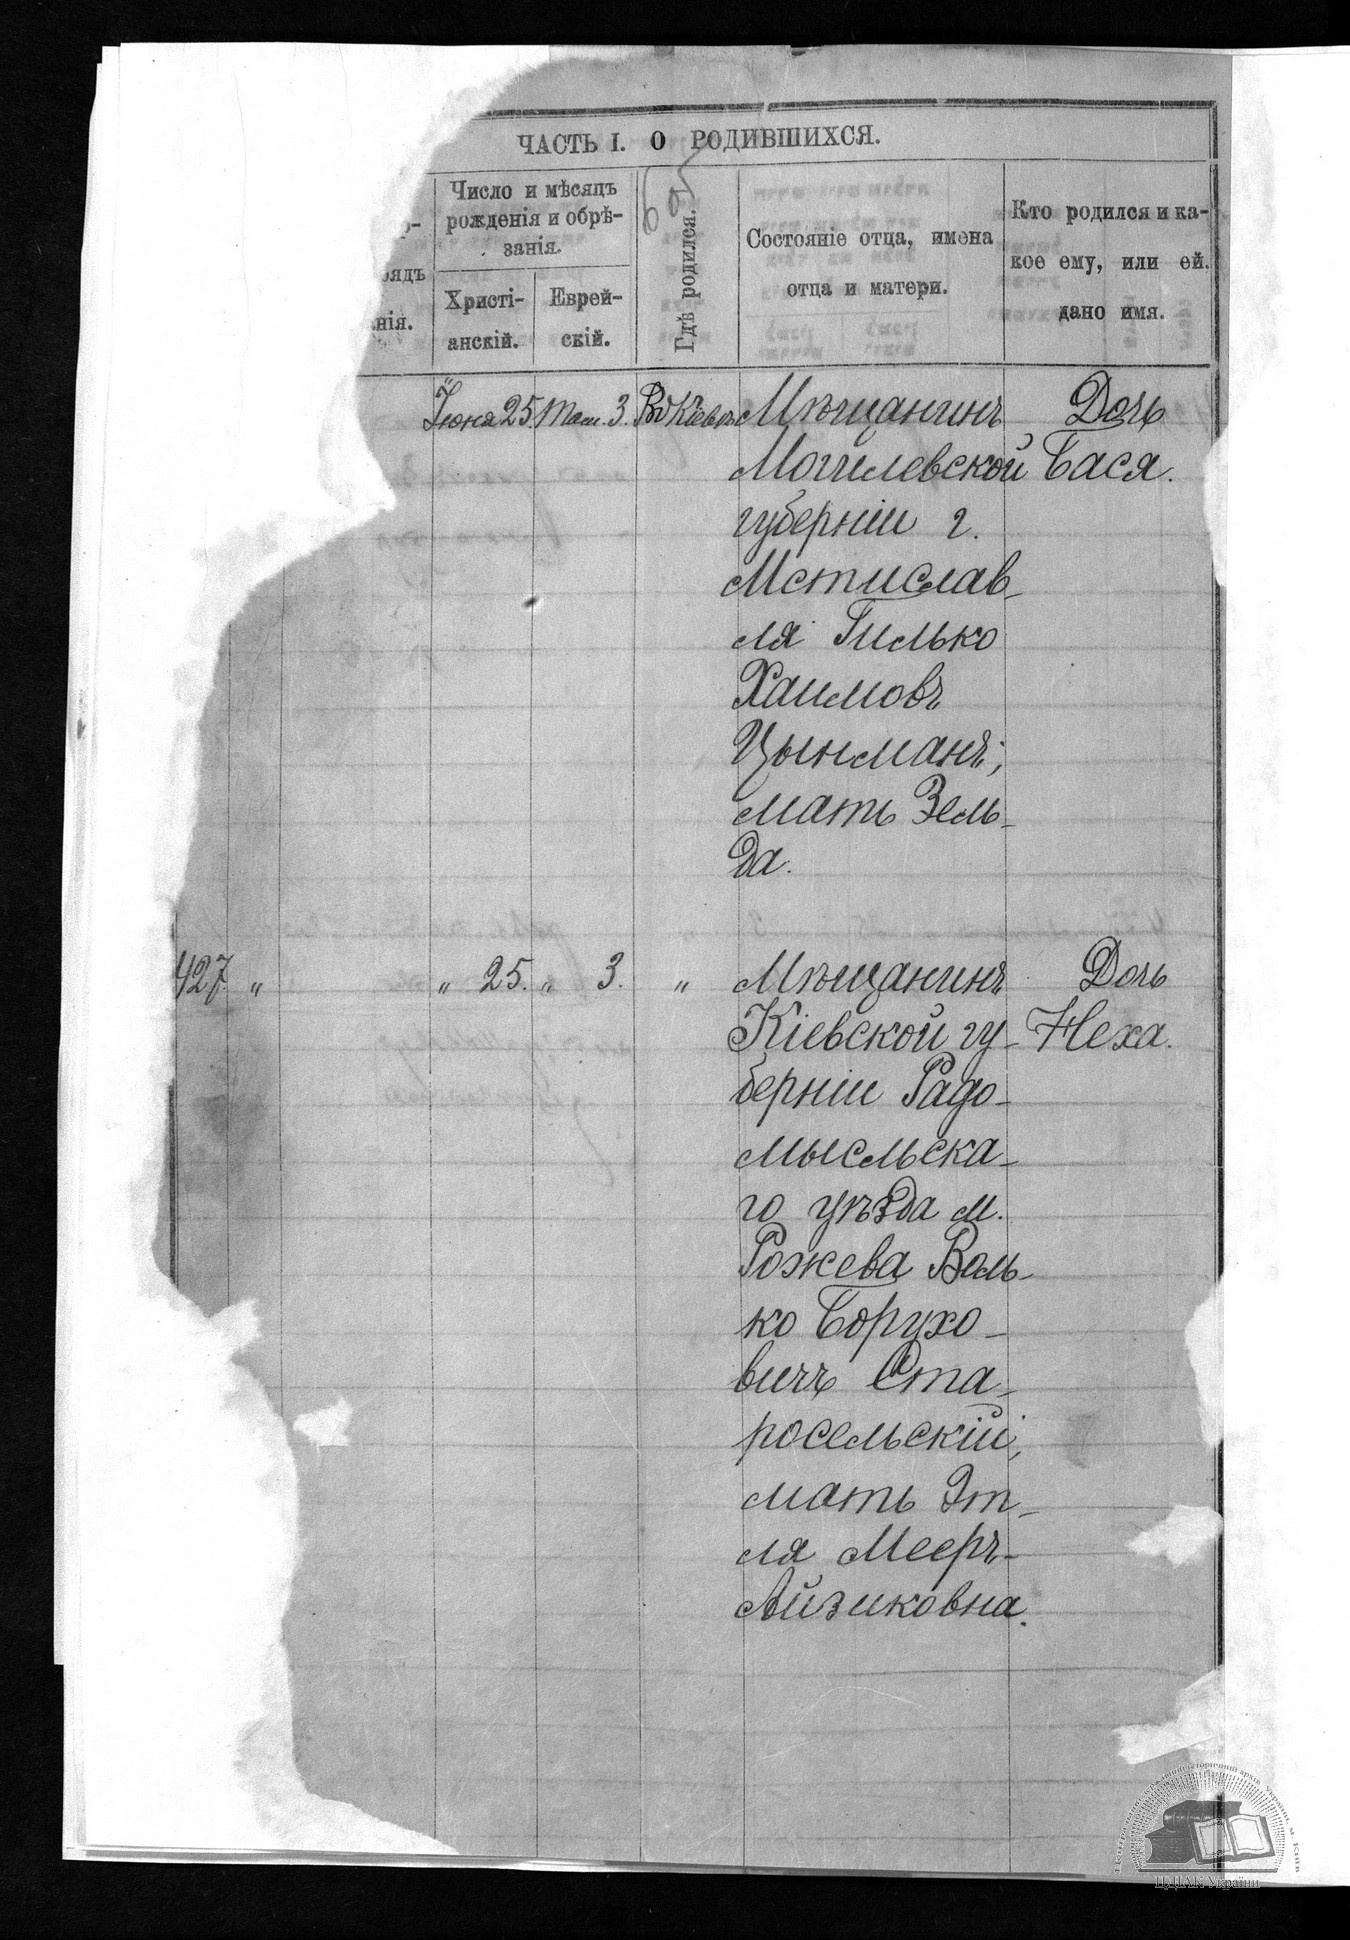 ЧАСТЬ I. О РОДИВШИХСЯ.
Число и мѣсяцъ
рожденія и обрѣ-
занія.
Христі-
анскій.
Еврей-
скій.
Гдѣ родился.
Состояніе отца, имена
отца и матери.
Кто родился и ка-
кое ему, или ей.
дано имя.
нія.
Іюня 25. Там. 3. Въ Кіевѣ Мѣщанинъ Дочь
Могилевской Бася.
губерніи г.
Мстислав-
ля Гилько
Хаимовъ
Цынманъ;
мать Зель-
да.
427 „ „ 25. „ 3. „ Мѣщанинъ Дочь
Кіевской гу- Неха.
берніи Радо-
мысльска-
го уѣзда м.
Рожева Воль-
ко Борухо-
вичъ Ста-
росельскій;
мать Эт-
ля Мееръ-
Айзиковна.
ЦДІАК України